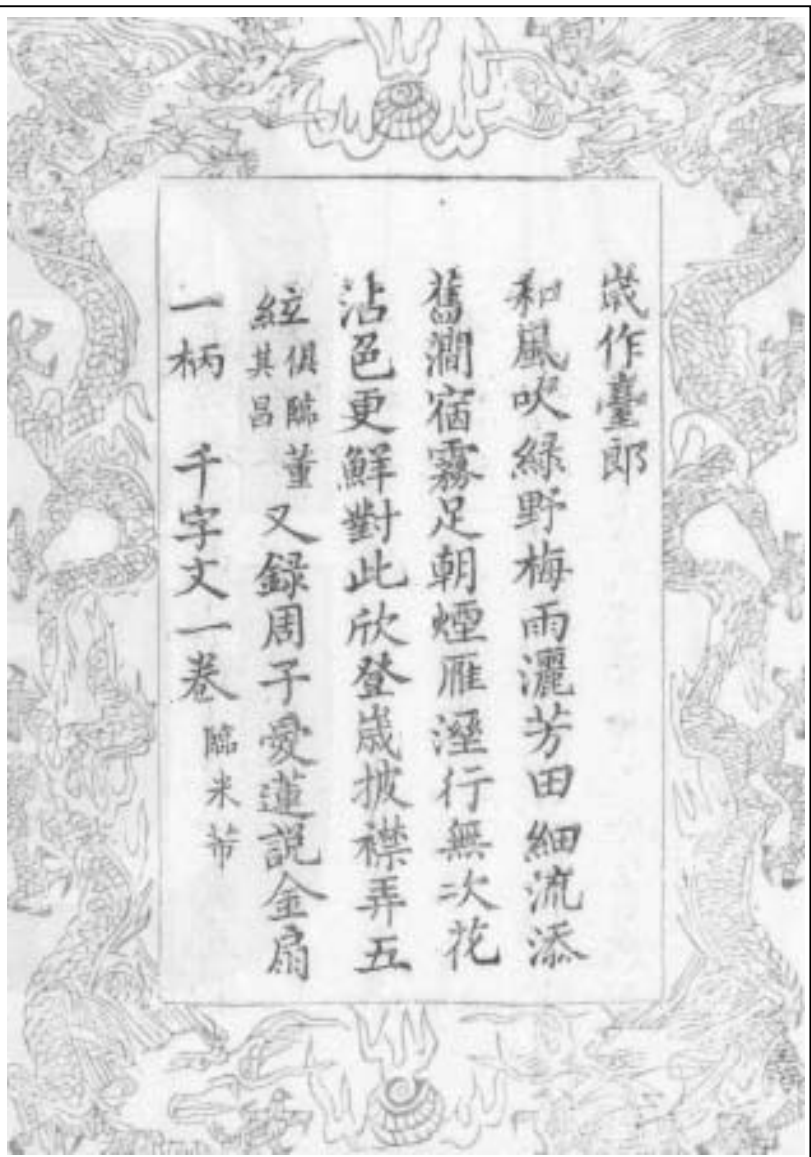 歳作臺郎
和風吹綠野梅雨灑芳田細流添
舊澗宿霧足朝煙雁溼行無次花
沾色更鮮對此欣登歲披襟弄五
絃俱臨董其昌又錄周子愛蓮說金扇
一柄 千字文一卷臨米芾